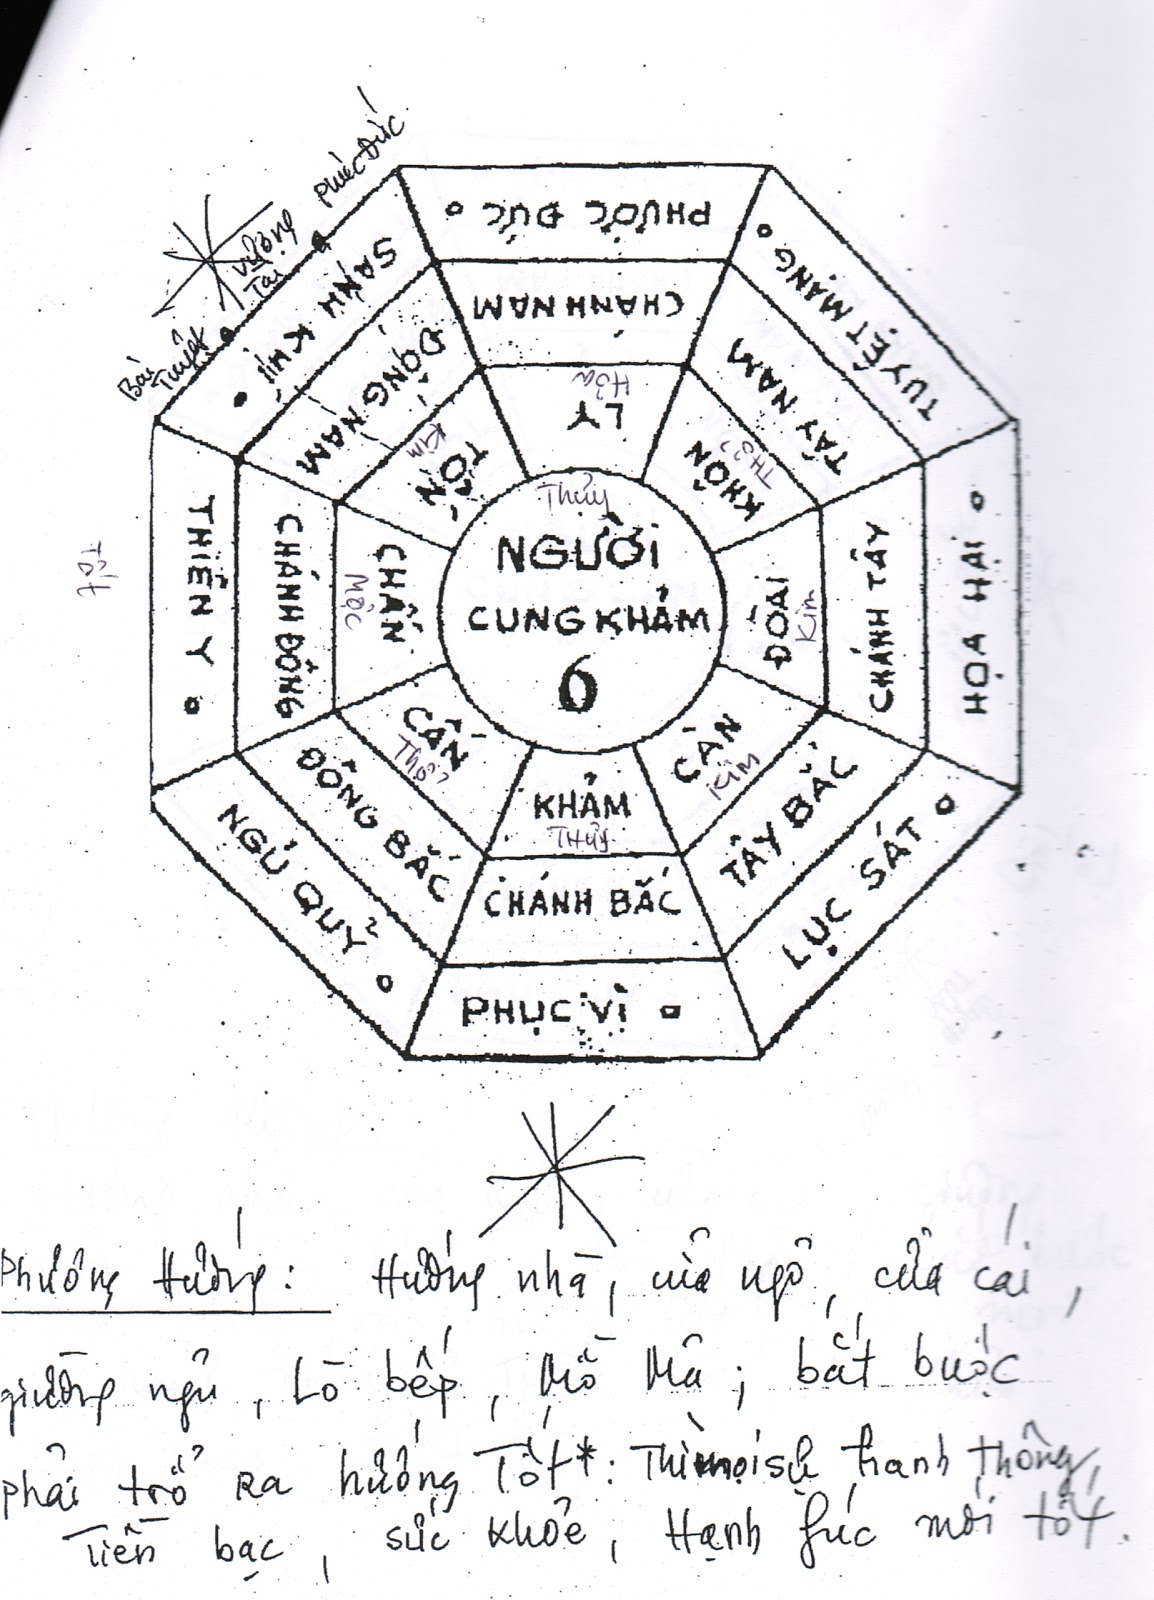 Phước Đức
Vượng
Tài
Bại
Tuyệt
PHƯỚC ĐỨC
CHÁNH NAM
LY
Hỏa
TUYỆT MẠNG
TÂY NAM
KHÔN
Thổ
HỌA HẠI
CHÁNH TÂY
ĐOÀI
Kim
LỤC SÁT
TÂY BẮC
CÀN
Kim
PHỤC VÌ
CHÁNH BẮC
KHẢM
Thủy
NGỦ QUỶ
ĐÔNG BẮC
CẤN
Thổ
THIÊN Y
CHÁNH ĐÔNG
CHẤN
Mộc
Tốt
SANH KHÍ
ĐÔNG NAM
TỐN
Kim
Thủy
NGƯỜI
CUNG KHẢM
6
Phương Hướng: Hướng nhà, cửa ngõ, cửa cái,
giường ngủ, Lò bếp, Mồ Mã; bắt buộc
phải trổ ra hướng Tốt*: Thì mọi sự hanh thông,
Tiền bạc, sức khỏe, Hạnh fúc mới tốt.